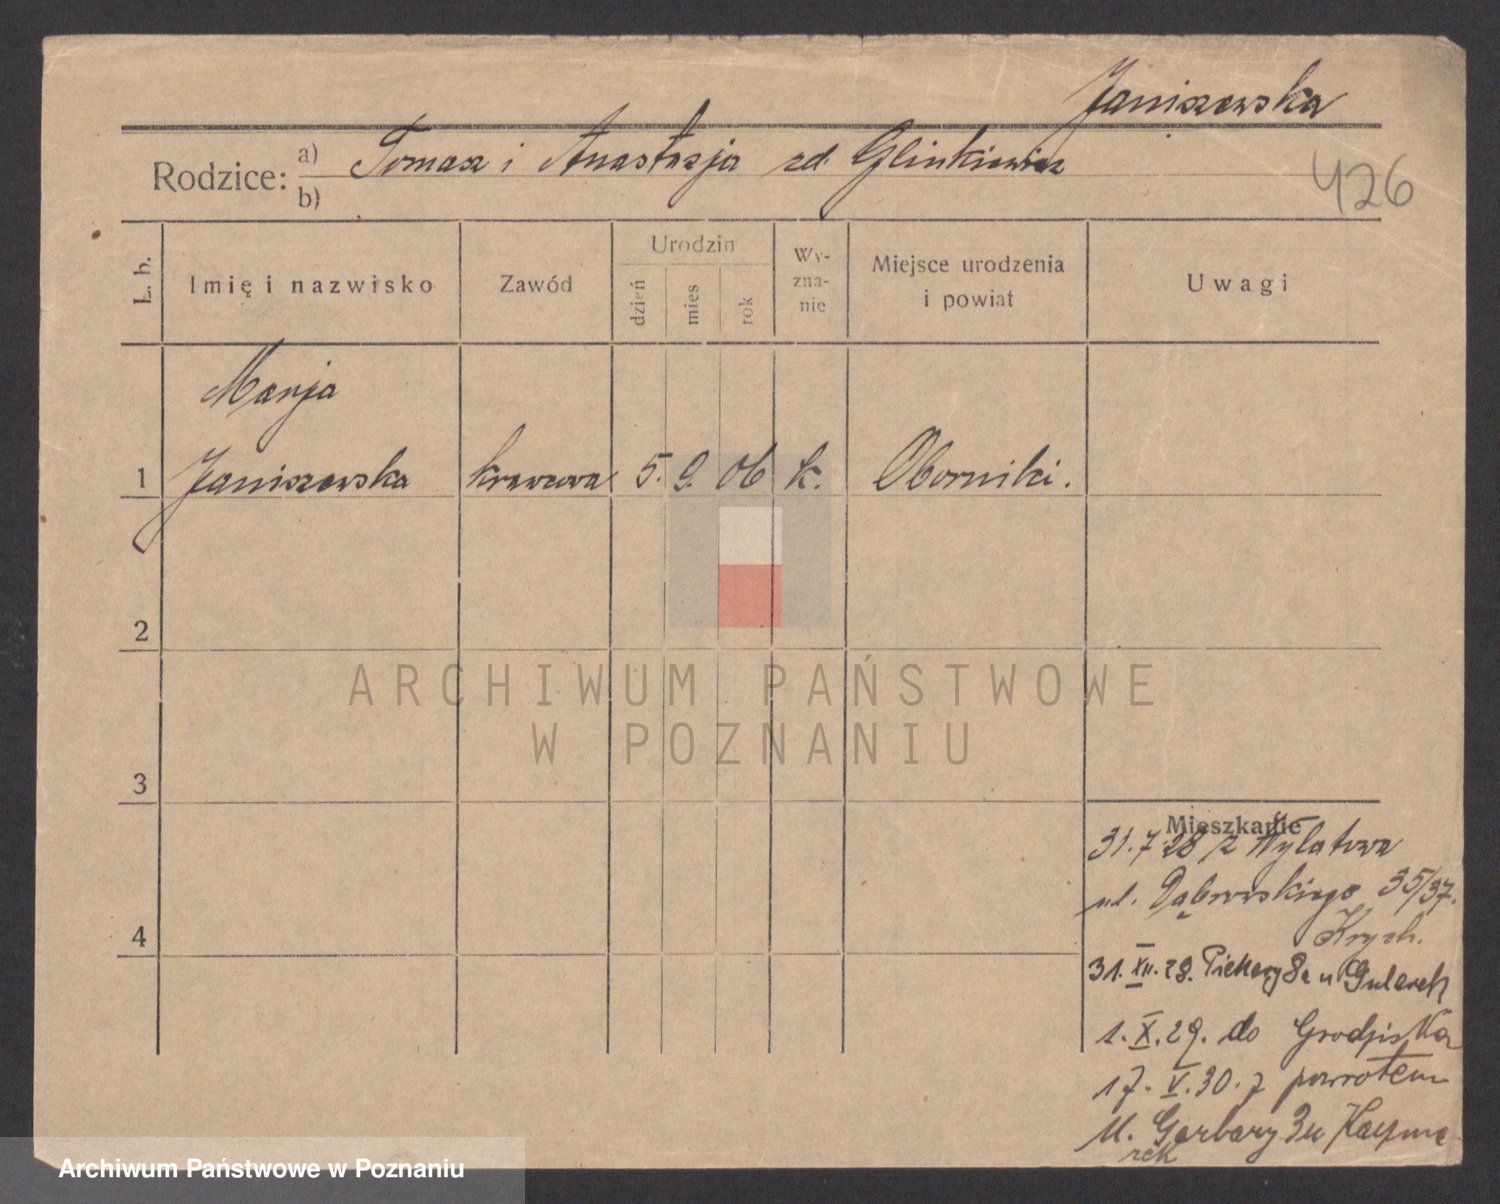 Janiszewska
Rodzice: a) Tomasz i Anastazja zd. Glinkiewicz
b)
426
L. b.
Imię i nazwisko
Zawód
Urodzin
dzień
mies
rok
Wy-
zna-
nie
Miejsce urodzenia
i powiat
Uwagi
Marja
1 Janiszewska krawcowa 5. 9. 06 k. Oborniki.
2
ARCHIWUM PAŃSTWOWE
W POZNANIU
3
Mieszkanie
31.7.28 z Wylatowa
ul. Dąbrowskiego 35/37.
Krych.
31.XII.28. Piekary 8a u Gularek
1.X.29. do Grodziska
17.V.30. z powrotem
ul. Garbary 3 u Kaczma
rek
4
Archiwum Państwowe w Poznaniu